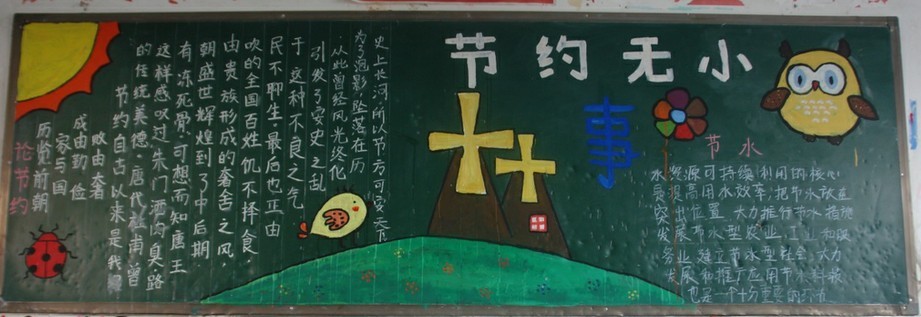 节约无小事
论节约
历览前朝
家与国
成由勤俭
败由太奢
节约自古以来是我国
的传统美德。唐代杜甫曾
这样感叹过:朱门酒肉臭路
有冻死骨。可想而知唐王
朝盛世辉煌到了中后期
由贵族形成的奢舌之风,
吹的全国百姓饥不择食
民不聊生最后也正由
于这种不良之气
引发了安史之乱
从此曾经风光终化
为了泡影,坠落在历
史上长河。所以节方可安天下
节水
水资源可持续利用的核心
是提高用水效率,把节水放在
突出位置 大力推行节水措施
发展节水型农业、工业和服
务业,建立节水型社会。大力
发展和推广应用节水科
也是一个十分重要的环节